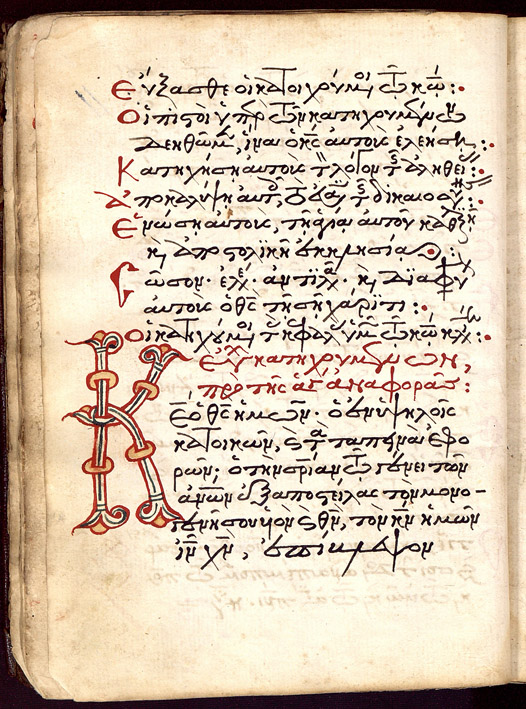 Εὔξασθε οἱ κατηχούμενοι τῷ κῶ:
Οἱ πιστοὶ ὑπὲρ τῶν κατηχουμένων
δεηθῶμεν, ἵνα ὁ κς αὐτοὺς ἐλεήση:
Κατηχήση αὐτοὺς τὸν λόγον τῆς ἀληθείας:
Ἀποκαλύψη αὐτοῖς τὸ εὐαγγέλιον τῆς δικαιοσύνης:
Ἑνώση αὐτοὺς, τῆ ἁγία αὐτοῦ καθολικῆ
κὶ ἀποστολικῆ ἐκκλησία:
Σῶσον· ἐλέησον· ἀντιλαβοῦ· κὶ διαφύ
αὐτοὺς ὁ θς τῆ σῆ χάριτι:
Οἱ κατηχούμενοι τὰς κεφαλὰς ὑμῶν τῷ κῶ κλίνατε:
Εὐχὴ κατηχουμένων,
πρὸ τῆς ἁγίας ἀναφορᾶς:
Κε ὁ θς ἡμῶν· ὁ ἐν ὑψηλοῖς
κατοικῶν, κ τὰ ταπεινὰ ἐφο
ρῶν; ὁ τὴν σρίαν τῷ γένει τῶν
ἀνων ἐξαποστείλας τὸν μονο-
γενῆ σου υἱὸν κ θν, τὸν κν ἡμῶν
ιν χν, ἐπίβλεψον